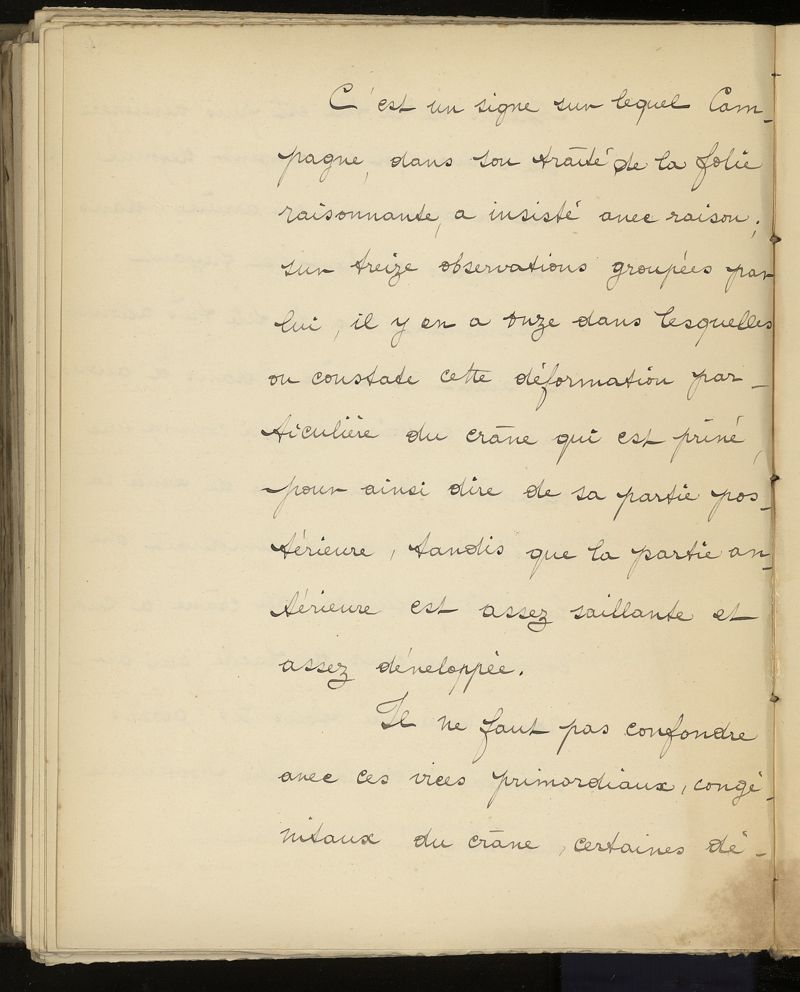 C'est un signe sur lequel Cam-
pagne, dans son traité de la folie
raisonnante, a insisté avec raison;
sur treize observations groupées par
lui, il y en a onze dans lesquelles
on constate cette déformation par-
ticulière du crâne qui est privé,
pour ainsi dire de sa partie pos-
térieure, tandis que la partie an-
térieure est assez saillante et
assez développée.
Il ne faut pas confondre
avec ces vices primordiaux, congé-
nitaux du crâne, certaines dé-